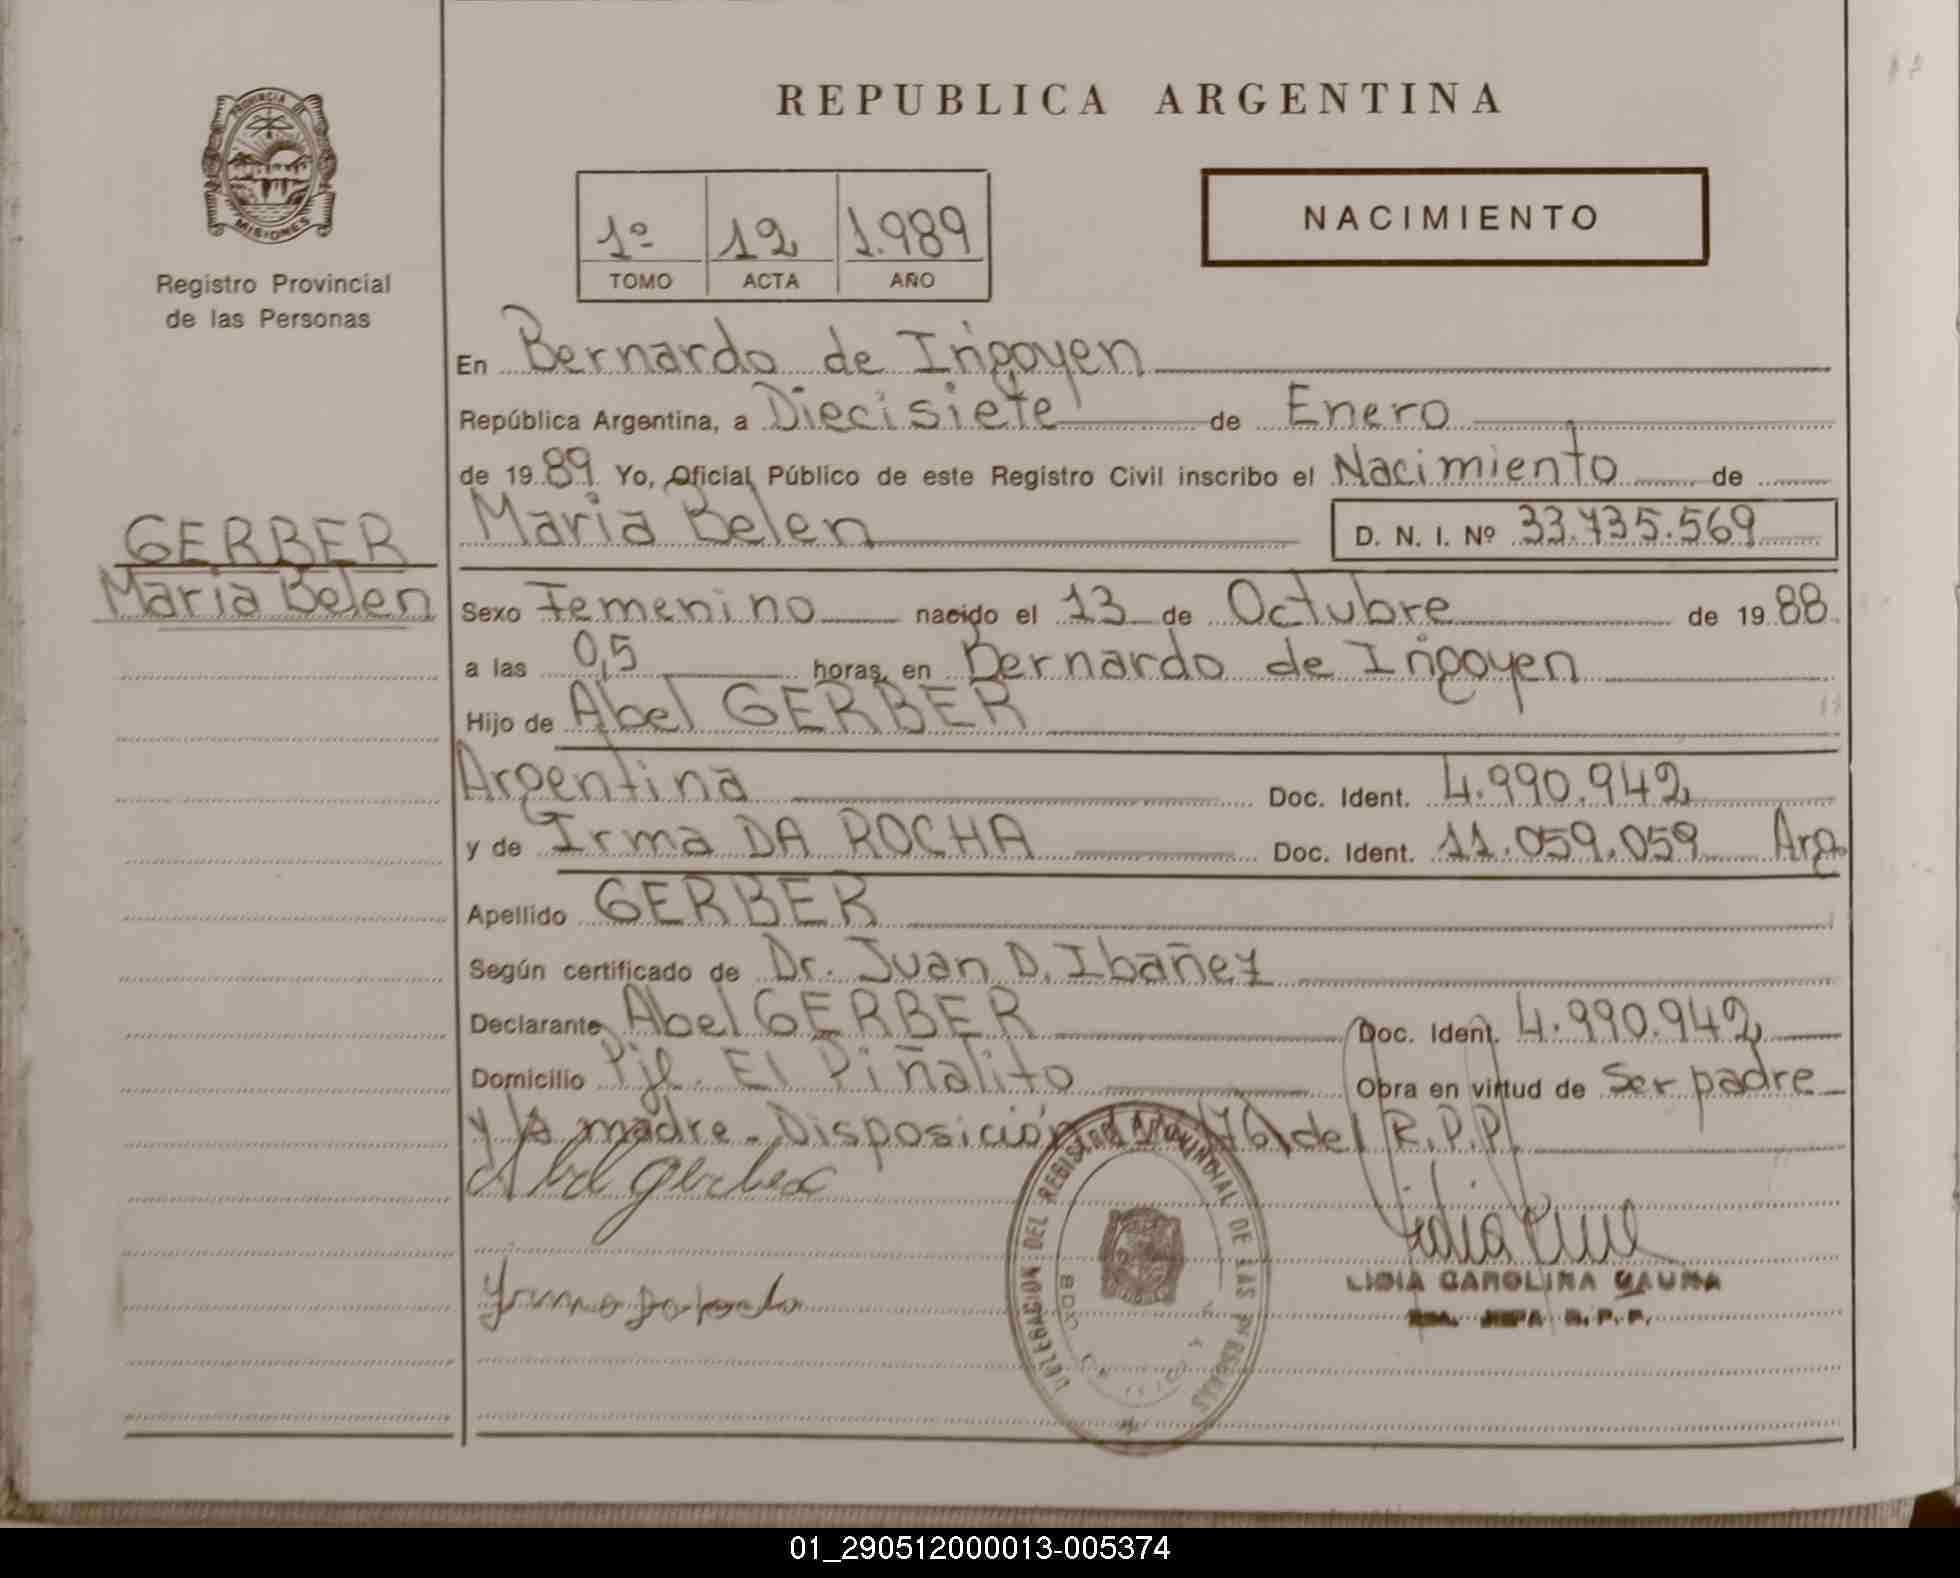 REPUBLICA ARGENTINA
PROVINCIA
MISIONES
Registro Provincial
de las Personas
1º 12 1.989
TOMO ACTA AÑO
NACIMIENTO
En Bernardo de Irigoyen
República Argentina, a Diecisiete de Enero
de 19 89 Yo, Oficial Público de este Registro Civil inscribo el Nacimiento de
GERBER
Maria Belen
Maria Belen D. N. I. Nº 33.735.569
Sexo Femenino nacido el 13 de Octubre de 19 88
a las 0,5 horas, en Bernardo de Irigoyen
Hijo de Abel GERBER
Argentina Doc. Ident. 4.990.942
y de Irma DA ROCHA Doc. Ident. 11.059.059 Arg
Apellido GERBER
Según certificado de Dr. Juan D. Ibañez
Declarante Abel GERBER Doc. Ident. 4.990.942
Domicilio Pje. El Piñalito Obra en virtud de Ser padre
y la madre - Disposición /76 del R.P.P.
Abel Gerber
DELEGACION DEL REGISTRO PROVINCIAL DE LAS PERSONAS
LIDIA CAROLINA GAUNA
JEFA R.P.P.
01_290512000013-005374